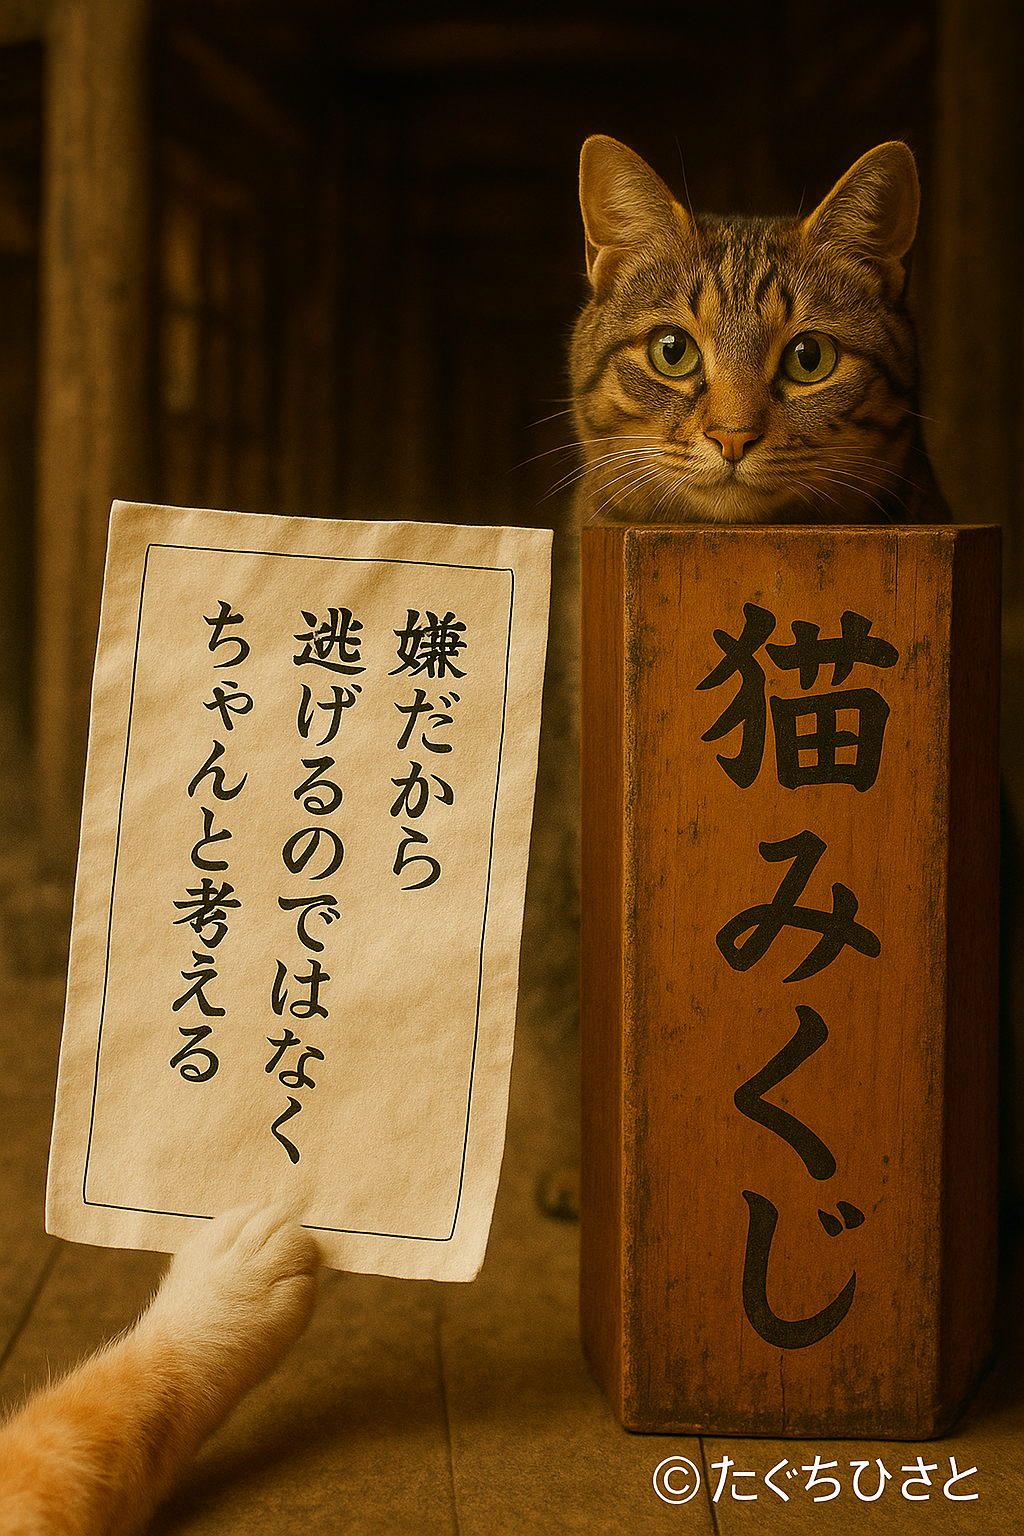 嫌だから
逃げるのではなく
ちゃんと考える
猫みくじ
©たぐちひさと